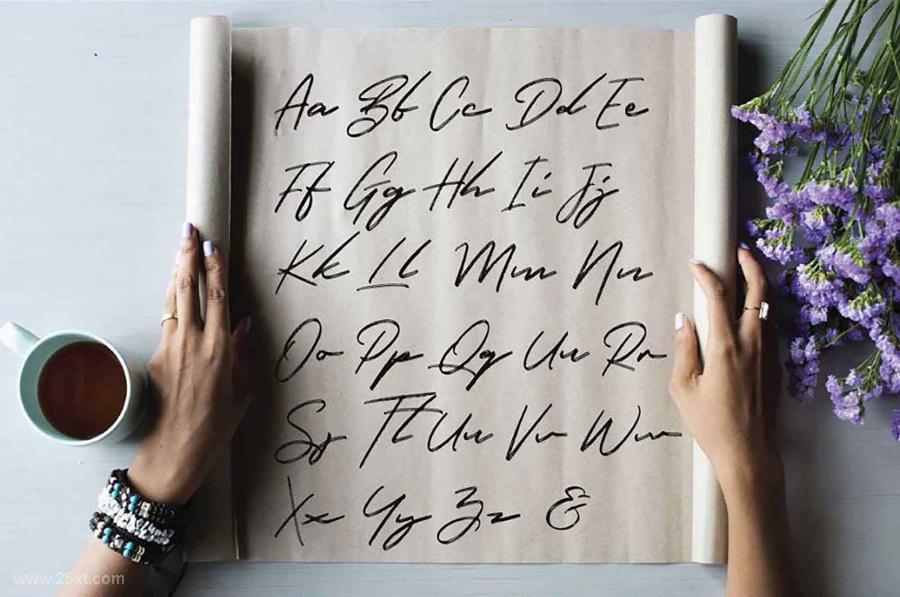 Aa Bb Cc Dd Ee
Ff Gg Hh Ii Jj
Kk Ll Mm Nn
Oo Pp Qq Uu Rr
Ss Tt Uu Vv Ww
Xx Yy Zz &
www.25xt.com